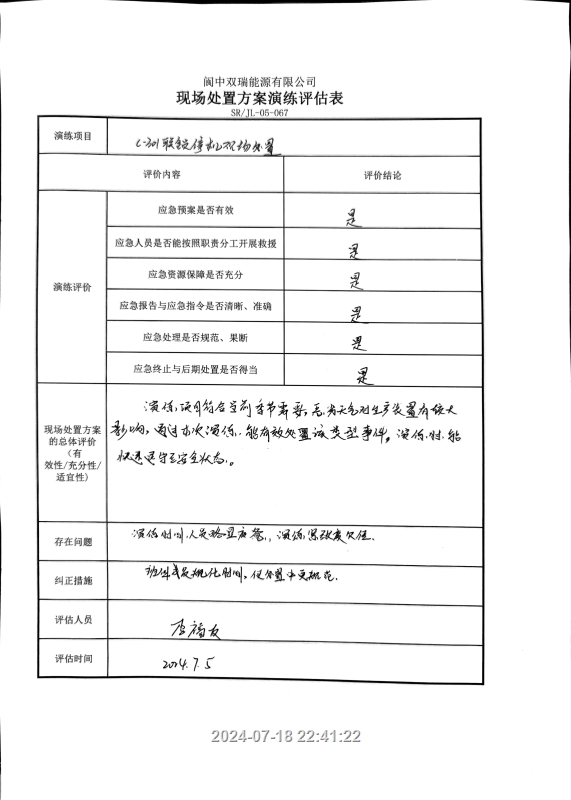 阆中双瑞能源有限公司
现场处置方案演练评估表
SR/JL-05-067
演练项目
C-301联锁停机现场处置
评价内容
评价结论
演练评价
应急预案是否有效
是
应急人员是否能按照职责分工开展救援
是
应急资源保障是否充分
是
应急报告与应急指令是否清晰、准确
是
应急处理是否规范、果断
是
应急终止与后期处置是否得当
是
现场处置方案
的总体评价
(有
效性/充分性/
适宜性)
演练项目符合当前季节需要,天气对生产装置有较大
影响,通过本次演练,能有效处置该类型事件。演练时,能
快速退守至安全状态。
存在问题
演练时间,人员略显,演练紧张度欠佳.
纠正措施
时间,处置中更规范.
评估人员
李福友
评估时间
2024.7.5
2024-07-18 22:41:22